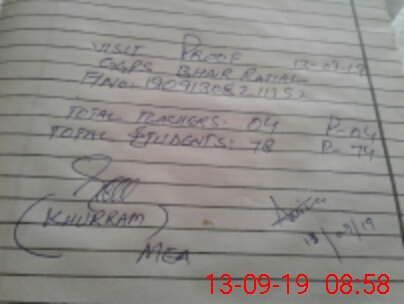 VISIT PROOF 13-09-19
GGPS BHAIR RATIAL
TOTAL TEACHERS: 04 P-04
TOTAL STUDENTS: 78 P-74
(KHURRAM)
MEA
13/09/19
13-09-19 08:58